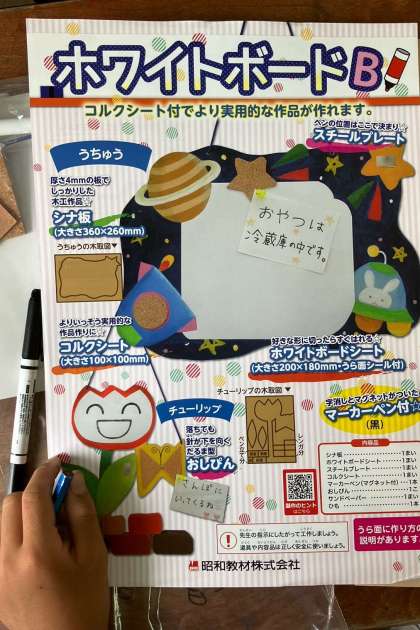 ホワイトボードB
コルクシート付でより実用的な作品が作れます。
ペンの位置はここで決まり☆
スチールプレート
うちゅう
厚さ4mmの板で
しっかりした
木工作品☆
シナ板
(大きさ360×260mm)
うちゅうの木取図▼
おやつは
冷蔵庫の中です。
よりいっそう実用的な
作品作りに☆
コルクシート
(大きさ100×100mm)
好きな形に切ったらすぐはれる☆
ホワイトボードシート
(大きさ200×180mm・うら面シール付)
チューリップの木取図▼
字消しとマグネットがついた
マーカーペン付☆
(黒)
チューリップ
落ちても
針が下を向く
だるま型
おしぴん
さんぽに
いってくるね
ペン立て分
レンガ分
内容品
シナ板 1まい
ホワイトボードシート 1まい
スチールプレート 1まい
コルクシート 1まい
マーカーペン(マグネット付) 1本
おしぴん 1こ
サンドペーパー 1まい
ひも 1本
製作のヒント
はこちら
先生の指示にしたがって工作しましょう。
道具や内容品は正しく安全に使いましょう。
うら面に作り方の
説明があります
昭和教材株式会社